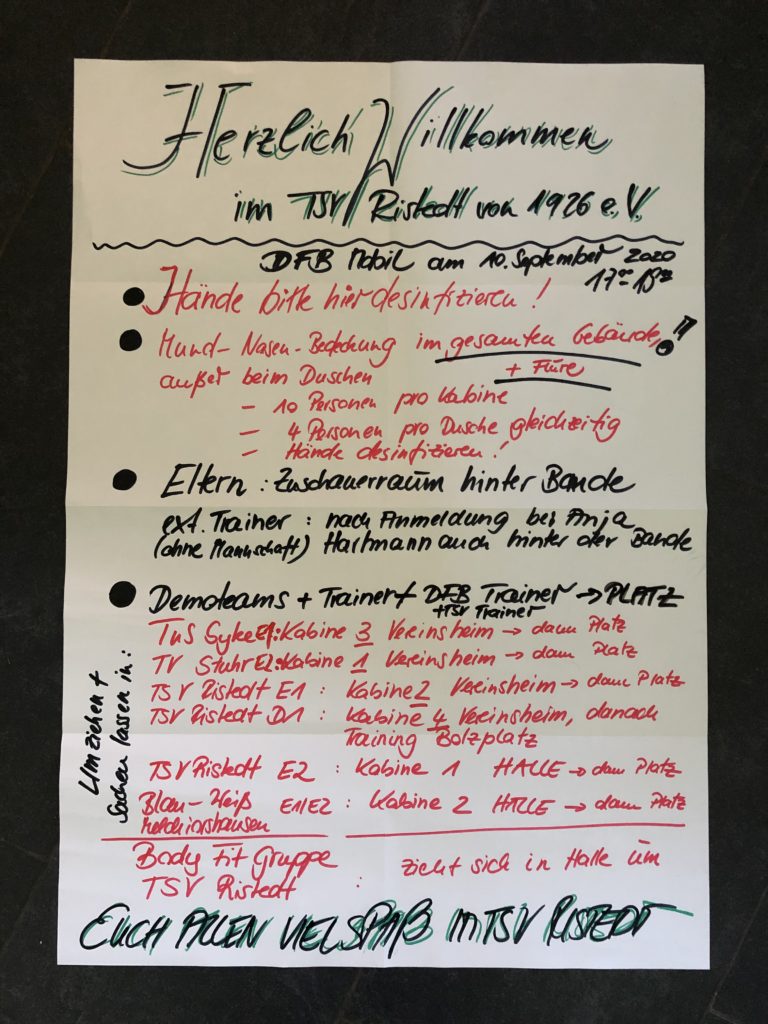 Herzlich Willkommen
im TSV Ristedt von 1926 e.V.
DFB Mobil am 10. September 2020
17⁰⁰-18³⁰
● Hände bitte hier desinfizieren!
● Mund-Nasen-Bedeckung im gesamten Gebäude, !!
außer beim Duschen + Flure
- 10 Personen pro Kabine
- 4 Personen pro Dusche gleichzeitig
- Hände desinfizieren!
● Eltern: Zuschauerraum hinter Bande
ext. Trainer: nach Anmeldung bei Anja
(ohne Mannschaft) Hartmann auch hinter der Bande
● Demoteams + Trainer + DFB Trainer → PLATZ
+TSV Trainer
Umziehen +
Sachen lassen in:
TuS Syke E1: Kabine 3 Vereinsheim → dann Platz
TV Stuhr E2: Kabine 1 Vereinsheim → dann Platz
TSV Ristedt E1: Kabine 2 Vereinsheim → dann Platz
TSV Ristedt D1: Kabine 4 Vereinsheim, danach
Training Bolzplatz
TSV Ristedt E2: Kabine 1 HALLE → dann Platz
Blau-Weiß E1/E2: Kabine 2 HALLE → dann Platz
Melchiorshausen
Body Fit Gruppe : zieht sich in Halle um
TSV Ristedt
EUCH ALLEN VIEL SPAß IM TSV RISTEDT